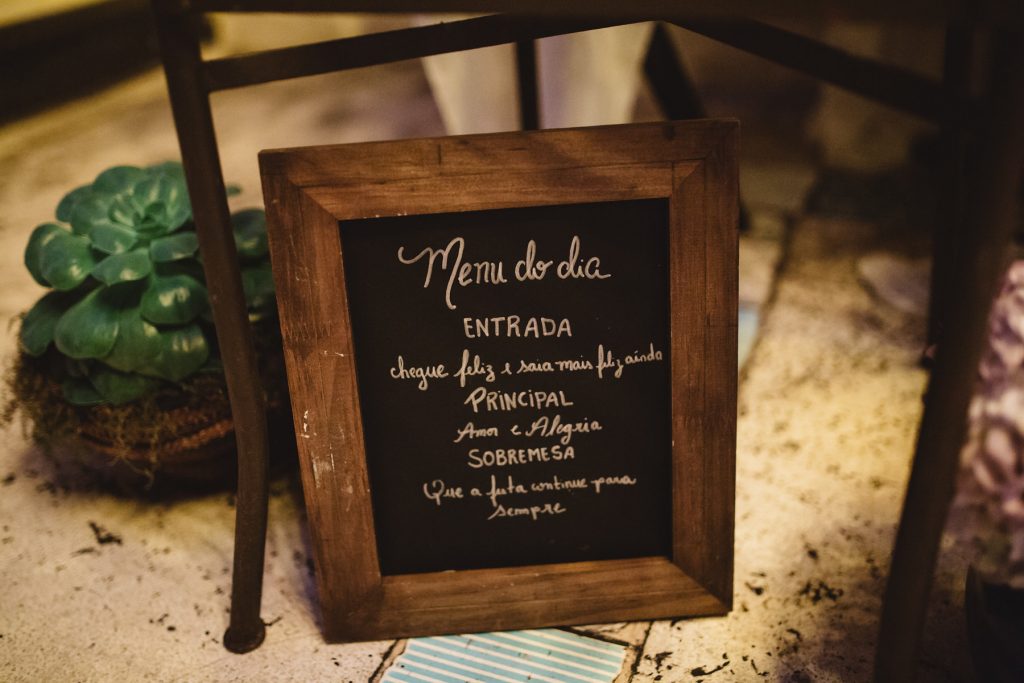 Menu do dia
ENTRADA
chegue feliz e saia mais feliz ainda
PRINCIPAL
Amor e Alegria
SOBREMESA
Que a festa continue para
sempre